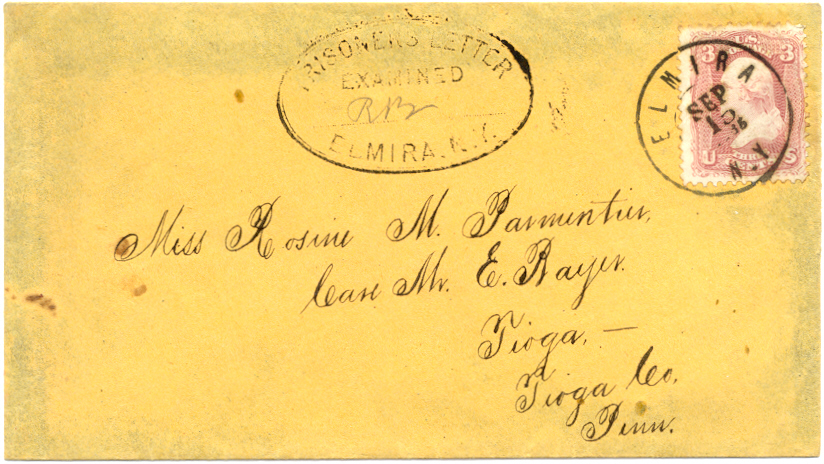 PRISONER'S LETTER
EXAMINED
ELMIRA. N.Y.
ELMIRA
SEP
10
N.Y.
3 U.S. 3
U S
Miss Rosine M. Parmentier,
Care Mr. E. Bayer.
Tioga, —
Tioga Co,
Penn.